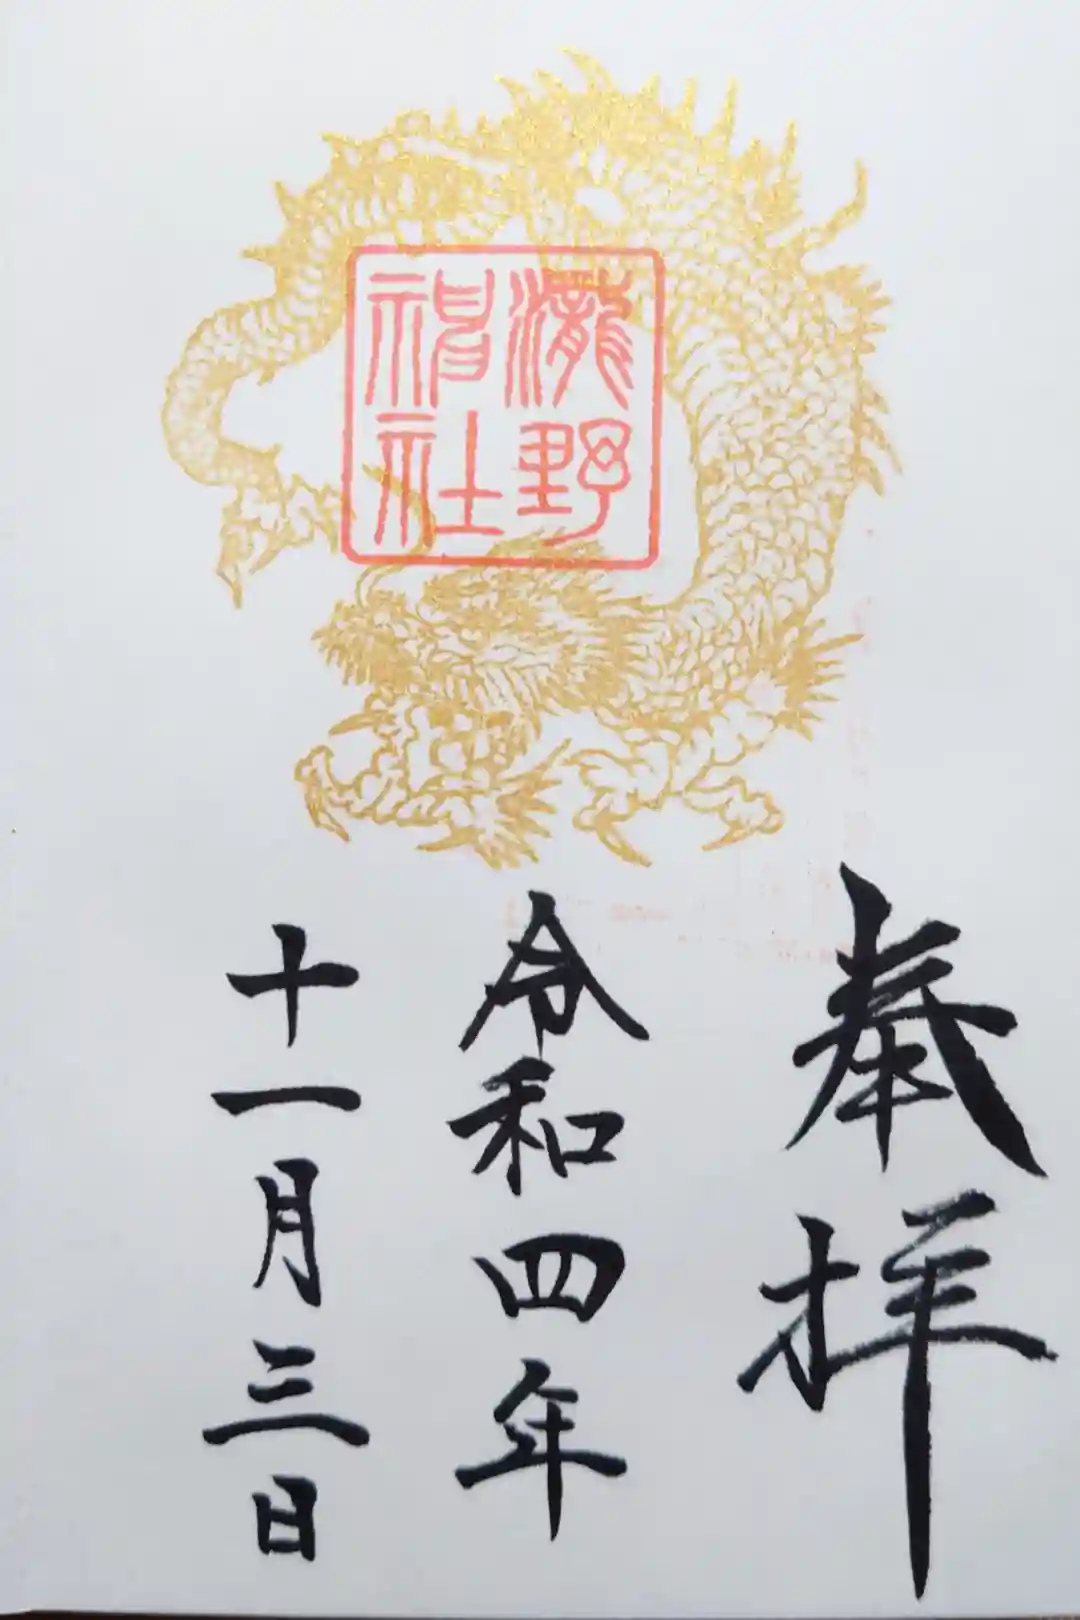 瀧野
神社
奉拝
令和四年
十一月三日